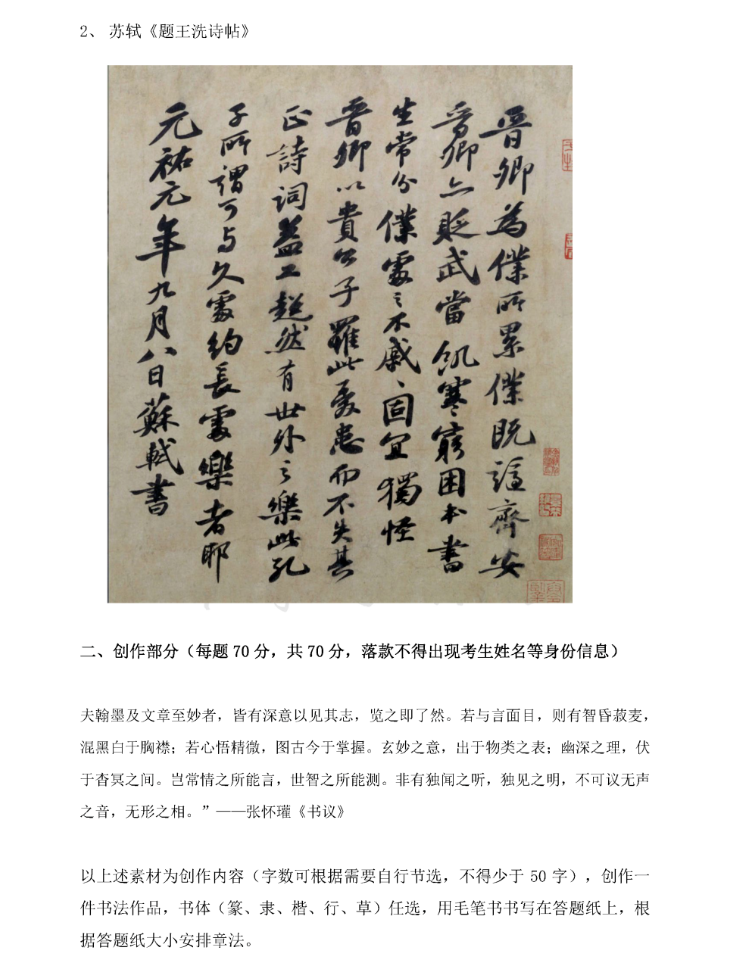 2、 苏轼《题王洗诗帖》
晉卿為僕所累僕既謫齊安
晉卿亦貶武當飢寒窮困本書
生常分僕處之不戚戚固宜獨怪
晉卿以貴公子罹此憂患而不失其
正詩詞益工超然有世外之樂此孔
子所謂可与久處約長處樂者耶
元祐元年九月八日蘇軾書
二、创作部分（每题 70 分，共 70 分，落款不得出现考生姓名等身份信息）
夫翰墨及文章至妙者，皆有深意以见其志，览之即了然。若与言面目，则有智昏菽麦，
混黑白于胸襟；若心悟精微，图古今于掌握。玄妙之意，出于物类之表；幽深之理，伏
于杳冥之间。岂常情之所能言，世智之所能测。非有独闻之听，独见之明，不可议无声
之音，无形之相。”——张怀瓘《书议》
以上述素材为创作内容（字数可根据需要自行节选，不得少于 50 字），创作一
件书法作品，书体（篆、隶、楷、行、草）任选，用毛笔书书写在答题纸上，根
据答题纸大小安排章法。